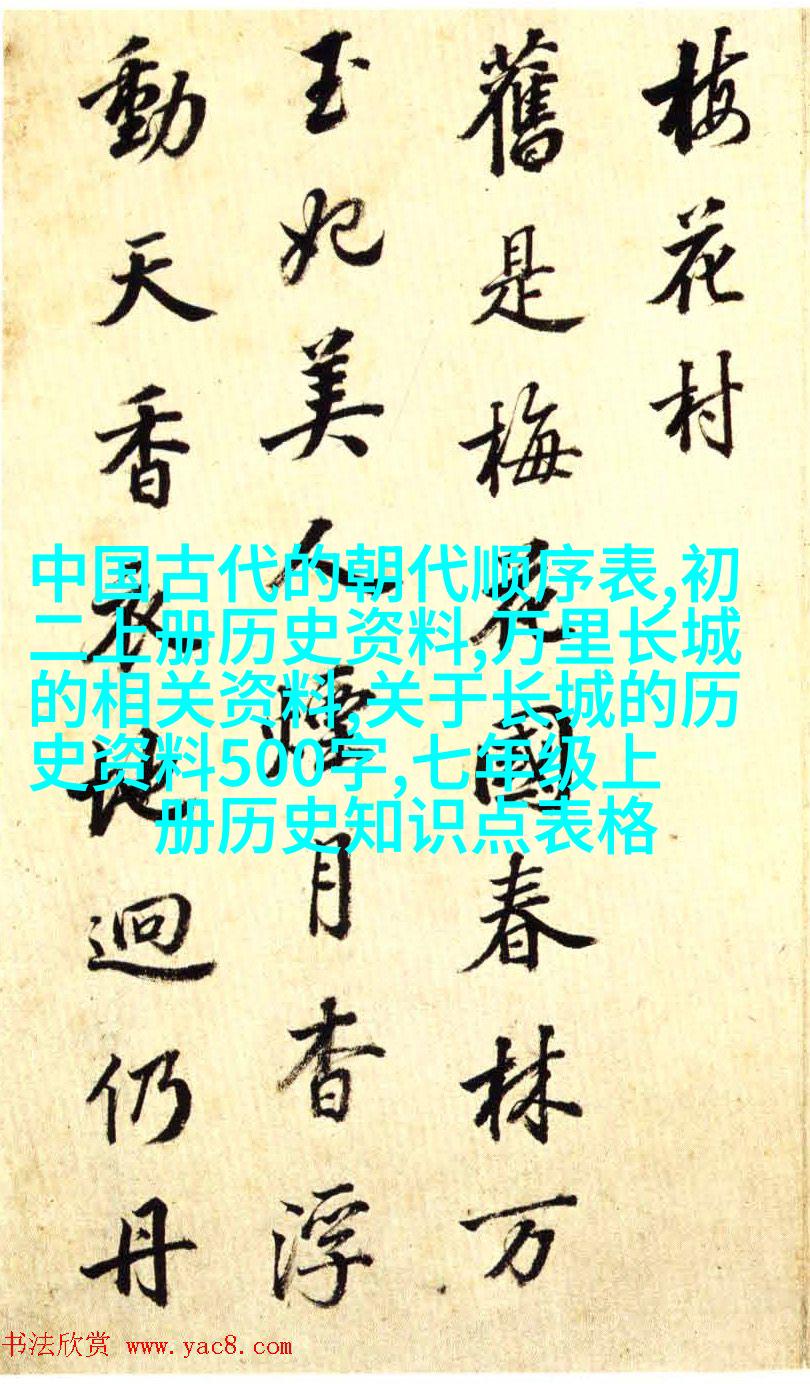 梅花村
舊是梅花國春林万
玉妃美人煙月杳浮
動天香地逈仍丹
中国古代的朝代顺序表,初
二上册历史资料,万里长城
的相关资料,关于长城的历
史资料500字,七年级上
册历史知识点表格
书法欣赏 www.yac8.com